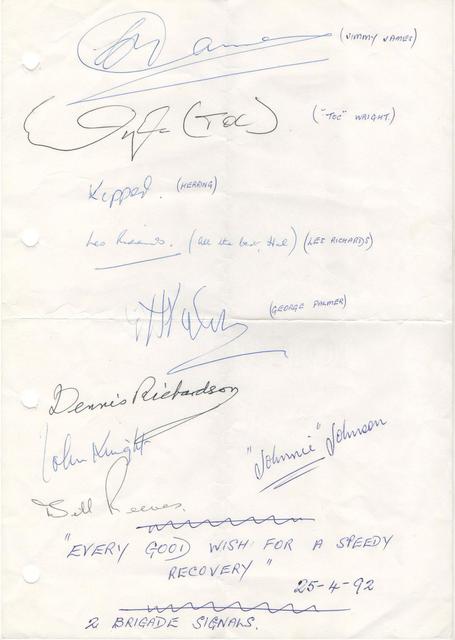 (JIMMY JAMES)
(TOC) ("TOC" WRIGHT.)
Kipper. (HERRING)
Les Richards. (All the best, Hal) (LES RICHARDS)
(GEORGE PALMER)
Dennis Richardson
John Knight
"Johnnie" Johnson
Bill Reeves.
"EVERY GOOD WISH FOR A SPEEDY
RECOVERY"
25-4-92
2 BRIGADE SIGNALS.